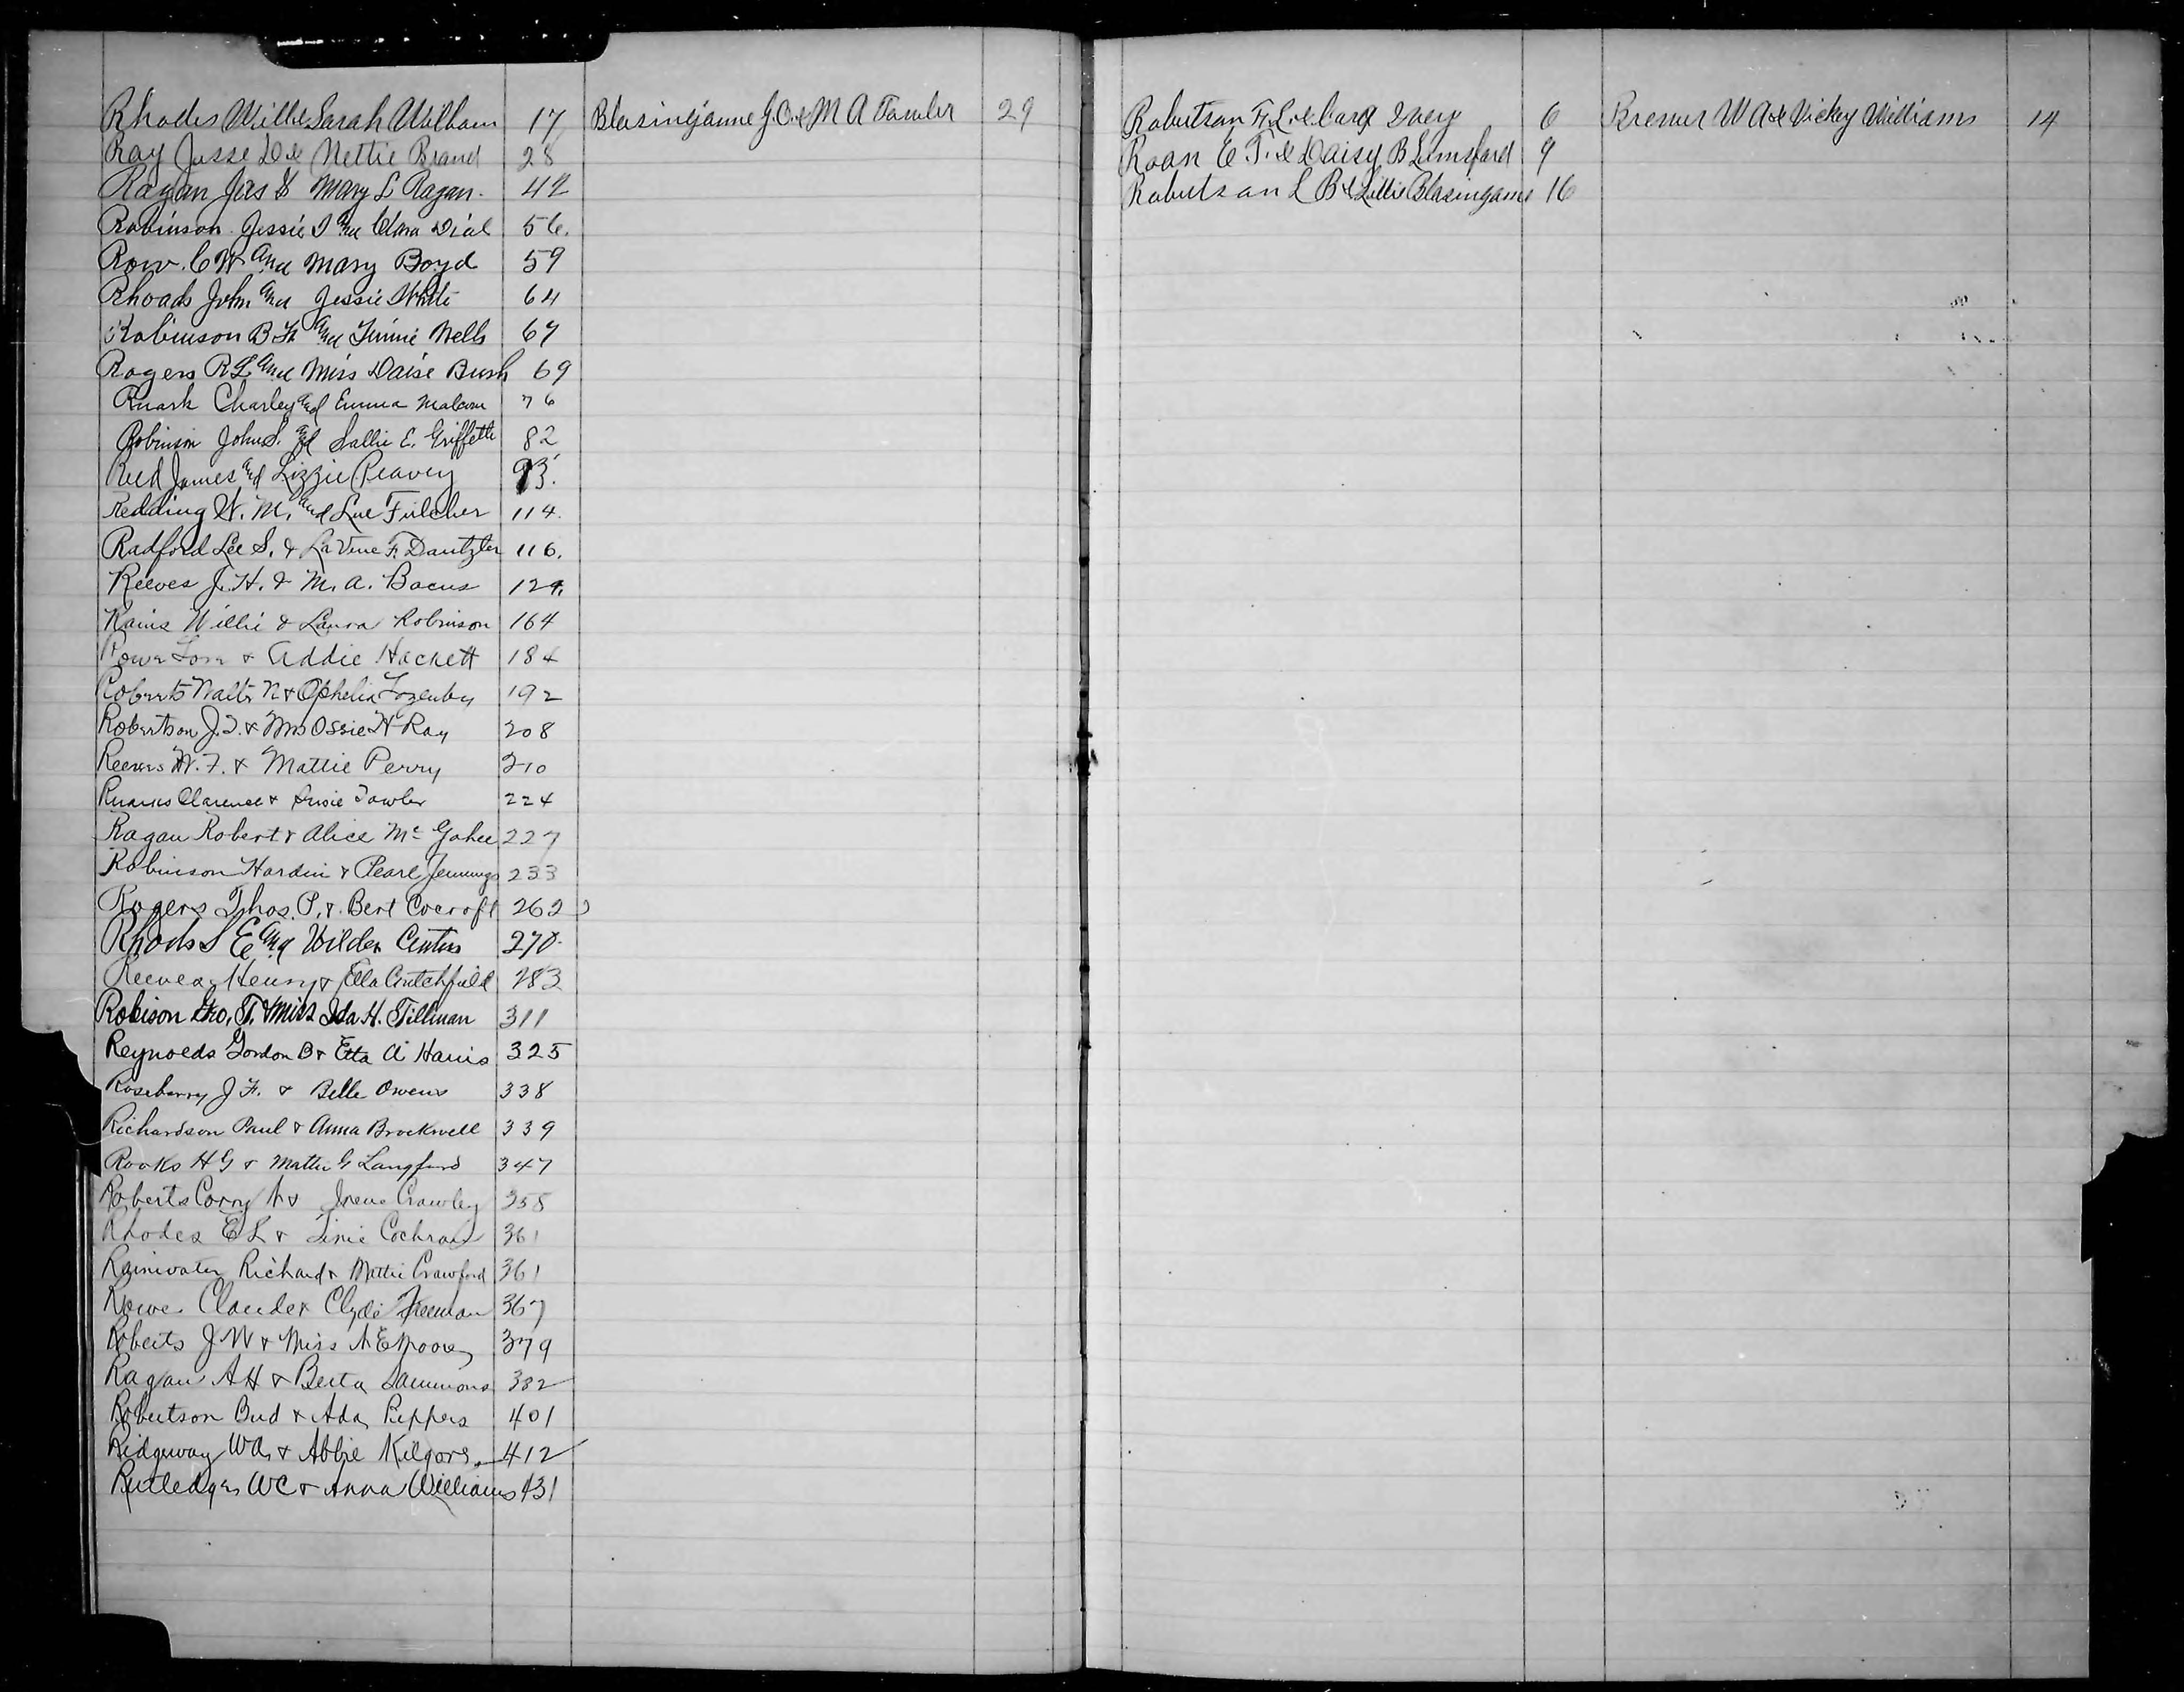 Rhodes Willie Sarah Williams 17
Ray Jesse D & Nettie Brand 28
Ragan Jas & Mary L Ragan. 42
Robinson Jessie and Clara Dial 56.
Row. C W and Mary Boyd 59
Rhoads John and Jessie White 64
Robinson B F and Wells 67
Rogers R L and Miss Daise Bush 69
Ruark Charley and Emma Malcom 76
Robinson John S. and Sallie E. Griffeth 82
Reed James and Lizzie Peavey 93.
Redding W. M. and Lue Fulcher 114.
Radford Lee S. & LaVine F. Dantzler 116.
Reeves J. H. & M. A. Bacus 129.
Rains Willie & Laura Robinson 164
Rowe & Addie Hackett 184
Roberts Walter N & Ophelia Lazenby 192
Robertson J. T. & Mrs Ossie H Ray 208
Reeves W. F. & Mattie Perry 210
Ruarks Clarence & Susie Fowler 224
Ragan Robert & Alice Mc Gahee 227
Robinson Hardin & Pearl Jennings 233
Rogers Thos. P. & Bert Cocroft 262
Rhods S E and Wilder 270
Reeves Henry & Ella Crutchfield 283
Robison Geo. T. & Miss Ida H. Tillman 311
Reynolds Gordon B & Etta A Harris 325
Roseberry J F. & Belle Owens 338
Richardson Paul & Anna Brockwell 339
Rooks H G & Mattie G Langford 347
Roberts Corry & Irene Crawley 358
Rhodes E L & Cochran 361
Rainwater Richard & Mattie Crawford 361
Rowe Claude & Clyde Freeman 367
Roberts J W & Miss A E Moore 379
Ragan A H & Berta Sammons 382
Robertson Bud & Ada Peppers 401
Ridgeway W A & Abbie Kilgore 412
Rutledge W C & Anna Williams 431
Blasingame J. O. & M A Fowler 29
Robertson F L & Ivey 6
Roan E T. & Daisy B Lunsford 9
Robertson L B & Lillie Blasingame 16
W A & Vickey Williams 14